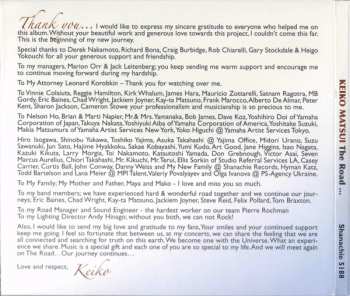 Thank you... I would like to express my sincere gratitude to everyone who helped me on
this album. Without your beautiful work and generous love towards this project, I couldn't come this far.
This is the beginning of my new journey.
Special thanks to Derek Nakamoto, Richard Bona, Craig Burbidge, Rob Chiarelli, Gary Stockdale & Heigo
Yokouchi for all your generous support and friendship.
To my managers, Marion Orr & Jack Leitenberg; you keep me sending warm support and encourage me
to continue moving forward during my hardship.
To My Attorney Leonard Korobkin – Thank you for watching over me.
To Vinnie Colaiuta, Reggie Hamilton, Kirk Whalum, James Hara, Mauricio Zottarelli, Satnam Ragotra, MB
Gordy, Eric Baines, Chad Wright, Jackiem Joyner, Kay-ta Matsuno, Frank Marocco, Alberto De Almar, Peter
Kent, Sharon Jackson, Cameron Stowe your professionalism and musicianship is so precious to me.
To Nelson Ho, Brian & Marti Napier, Mr.& Mrs. Yamanaka, Bob James, Dave Koz, Yoshihiro Doi of Yamaha
Corporation of Japan, Takuya Nakata, Yoshiyuki Aiba of Yamaha Corporation of America, Yoshitake Suzuki,
Makia Matsumura of Yamaha Artist Services New York, Yoko Higuchi @ Yamaha Artist Services Tokyo.
Hiro Isogawa, Shinobu Yukawa, Toshiko Yajima, Asuka Takahashi @ Yajima Office, Midori Urano, Satsu
Sawanuki, Jun Sato, Hajime Hyakkoku, Sakae Kobayashi, Yumi Kudo, Art Good, Jane Higgins, Isao Nagata,
Kazuki Kikuta, Larry Moria, Toi Nakamoto, Katsutoshi Yamada, Dorn Gristbrough, Victor Asai, Seven
Marcus Aurelius, Chiori Takahashi, Mr. Kikuchi, Mr. Terui, Ellis Sorkin of Studio Referral Services LA, Casey
Currier, Curtis Ball, John Conway, Danny Weiss and My New Family @ Shanachie Records, Hyman Katz,
Todd Bartelson and Lana Meier @ MPI Talent, Valeriy Povalyayev and Olga Ivanova @ PS-Agency Ukraine.
To My Family; My Mother and Father, Maya and Mako – I love and miss you so much.
To my band members; we have experienced hard & wonderful road together and we continue our jour-
neys, Eric Baines, Chad Wright, Kay-ta Matsuno, Jackiem Joyner, Steve Reid, Felix Pollard, Tom Braxton.
To my Road Manager and Sound Engineer – the hardest worker on our team Pierre Rochman
To my Lighting Director Andy Hinager, without you both, we can not Rock!
Also, I would like to send my big love and gratitude to my fans, Your smiles and your continued support
keep me going. I feel so fortunate that between us, at my concerts, we can share the feeling that we are
all connected and searching for truth on this earth. We become one with the Universe. What an experi-
ence we share. Music is a special gift and each one of you are so special to my life. And we will meet again
on The Road.. Our journey continues...
Love and respect,
Keiko
KEIKO MATSUI The Road ...
Shanachie 5188